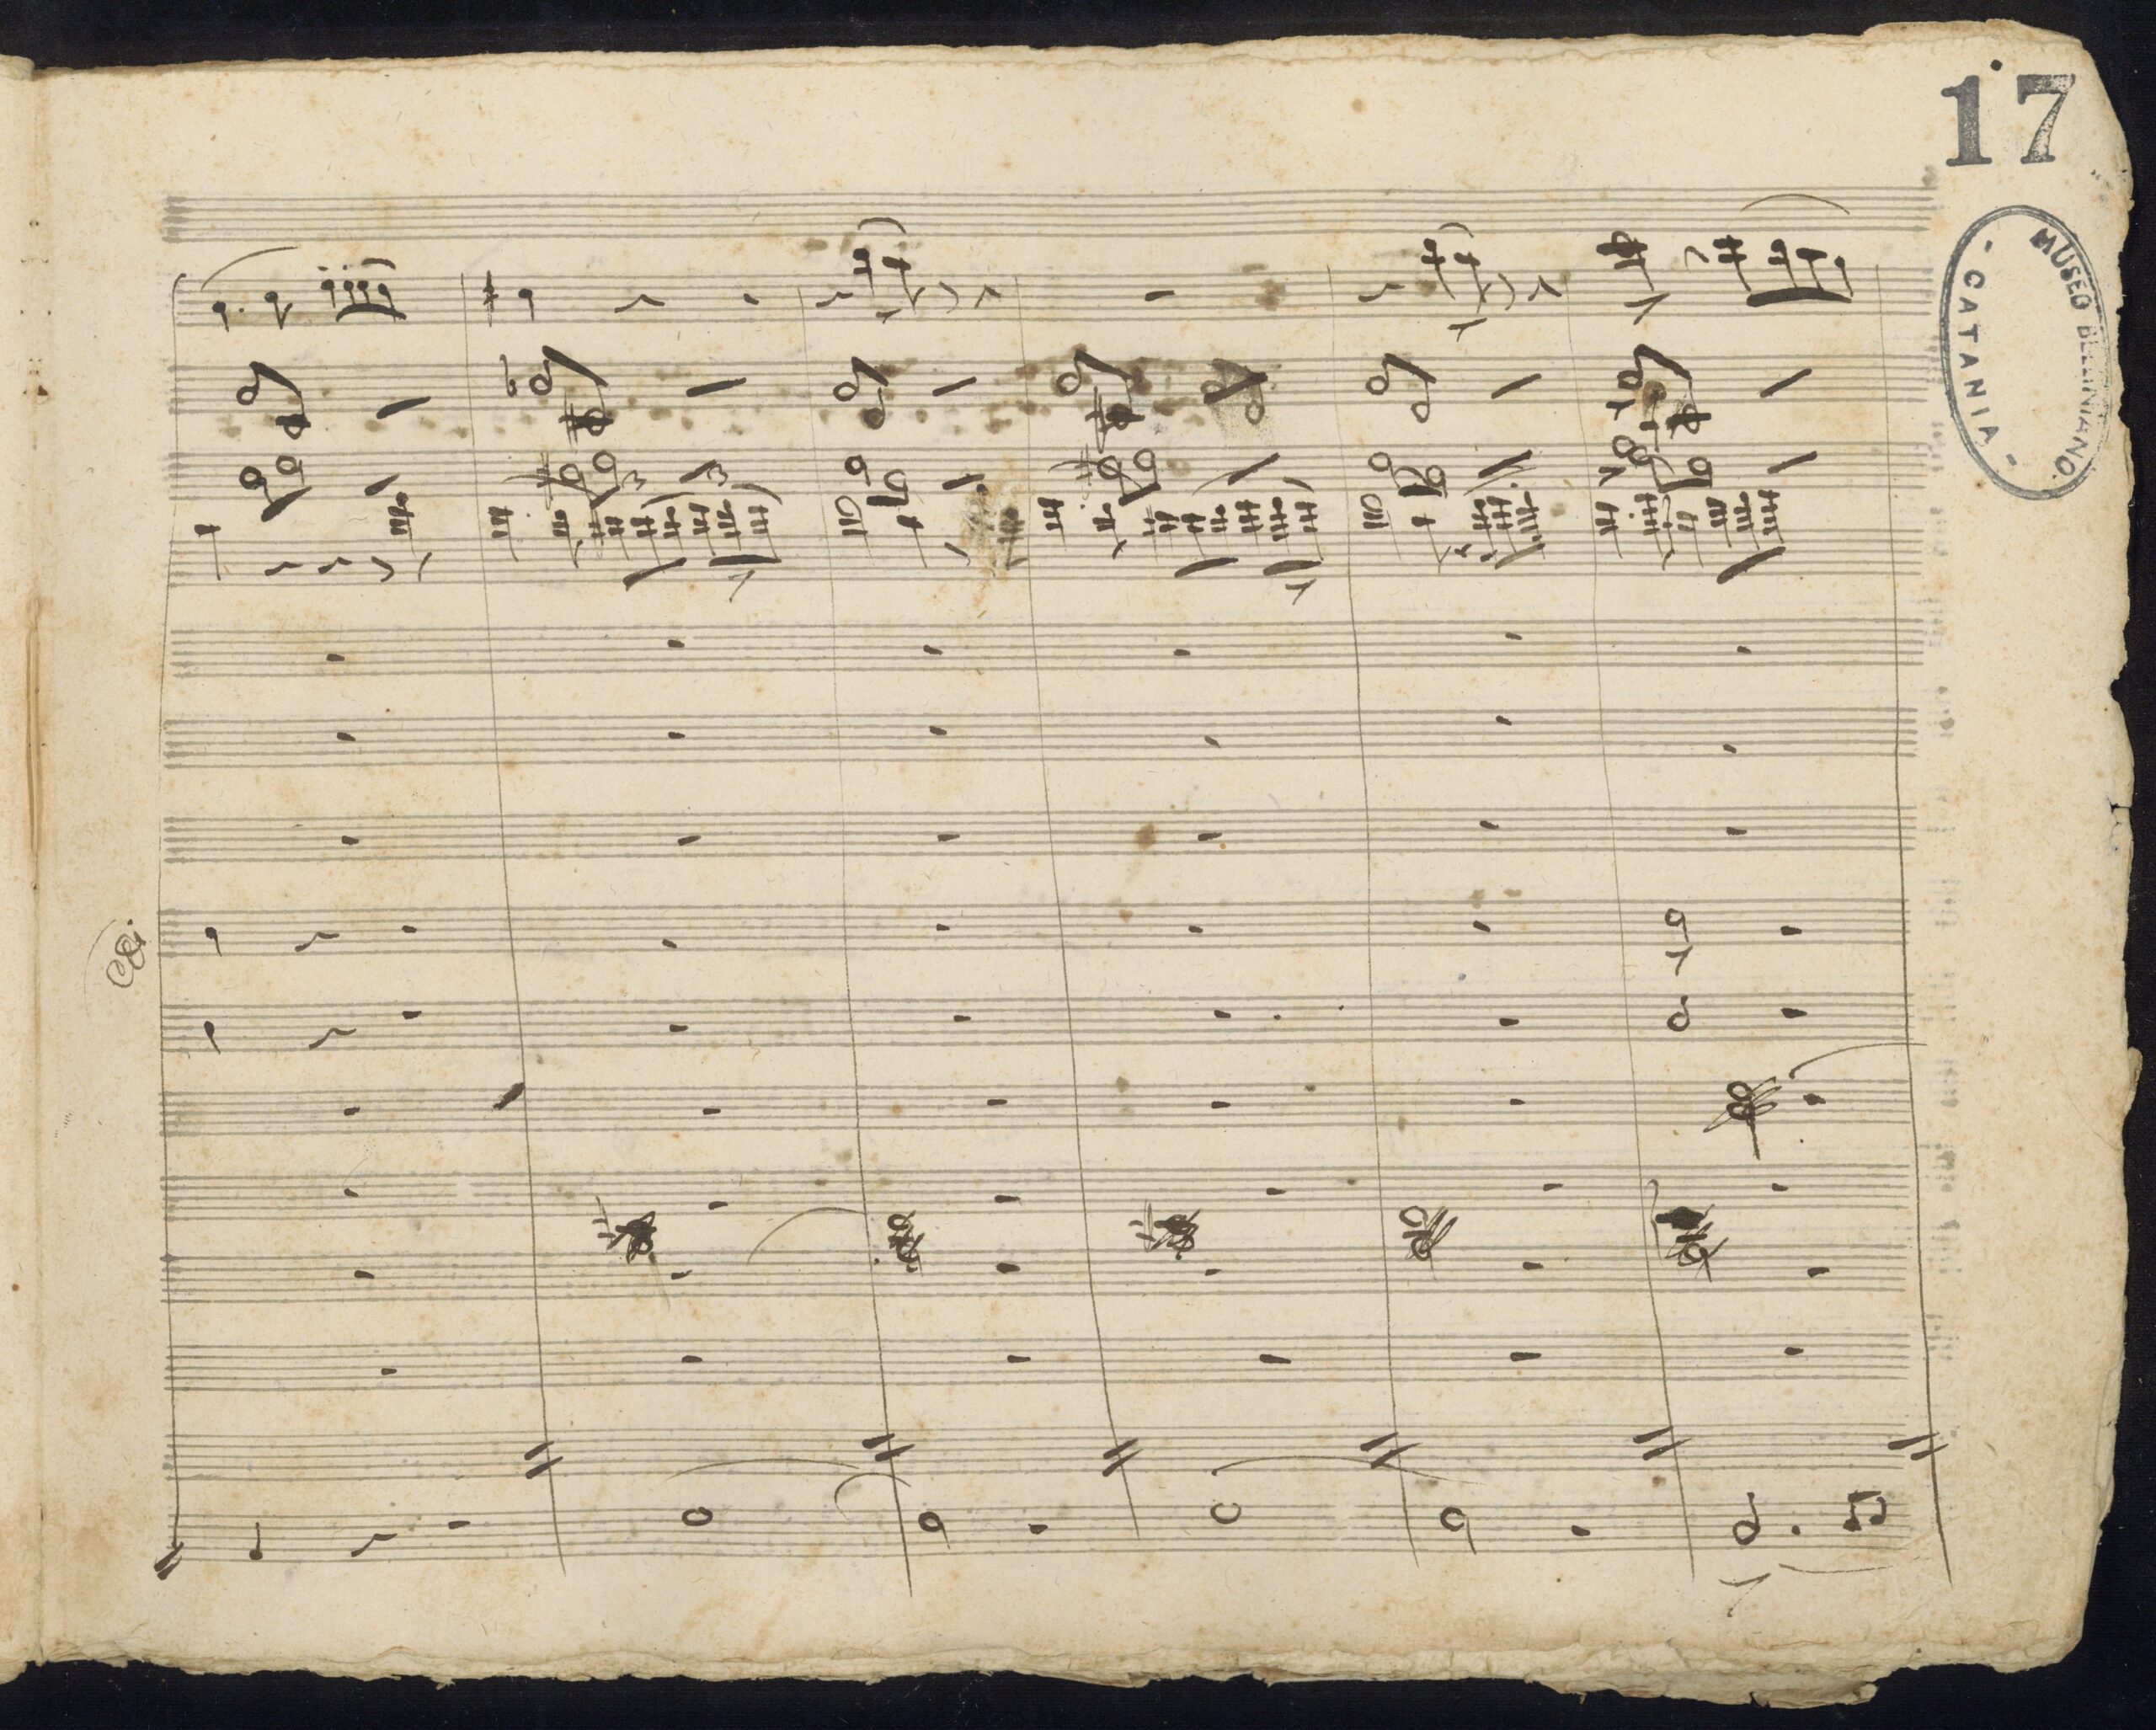 17
MUSEO BELLINIANO.
- CATANIA -
3 3